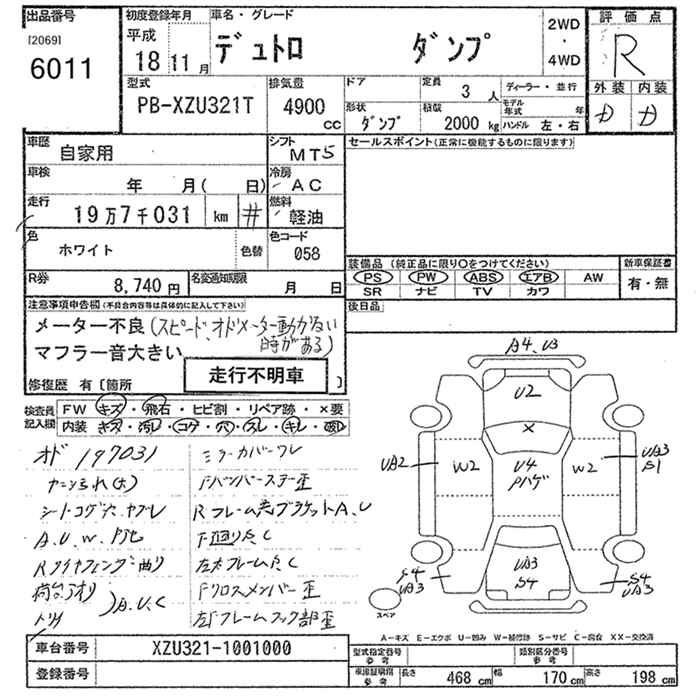 出品番号
[2069]
6011
初度登録年月
平成
18 11月
車名・グレード
デュトロ ダンプ
2WD
・
4WD
評価点
R
外装 内装
D D
型式
PB-XZU321T
排気量
4900
cc
ドア
形状
ダンプ
定員
3 人
積載
2000 kg
ディーラー・並行
モデル年式 年
ハンドル 左・右
車歴
自家用
シフト
MT5
車検
年 月( 日)
冷房
AC
走行
19万7千031 km #
燃料
軽油
色
ホワイト
色替
色コード
058
R券
8,740 円
名変通知期限
月 日
セールスポイント(正常に機能するものに限ります)
装備品(純正品に限り○をつけてください)
PS PW ABS エアB AW
SR ナビ TV カワ
新車保証書
有・無
後日品
注意事項申告欄(不具合内容等は具体的に記入して下さい)
メーター不良(スピード、オドメーター動かない
時がある)
マフラー音大きい
走行不明車
修復歴 有〔箇所 〕
検査員記入欄
FW キズ・飛石・ヒビ割・リペア跡・×要
内装 キズ・汚レ・コゲ・穴・スレ・キレ・
オド 197031
シートコゲ穴ヤブレ
A.U.W.
荷台アオリ
トリイ
A.U.C
ミラーカバーワレ
Fバンパーステー歪
Rフレーム先ブラケットA.U
下廻りS.C
左右フレームS.C
Fクロスメンバー歪
左Fフレームフック部歪
A4.U3
U2
×
UA2
W2
U4
Pハゲ
W2
UA3
S1
UA3
S4
S4
UA3
S4
UA3
スペア
A－キズ E－エクボ U－凹み W－補修跡 S－サビ C－腐食 XX－交換済
車台番号
XZU321-1001000
登録番号
型式指定番号
参考
類別区分番号
参考
車検証積用
参考
長さ 468 cm
幅 170 cm
高さ 198 cm